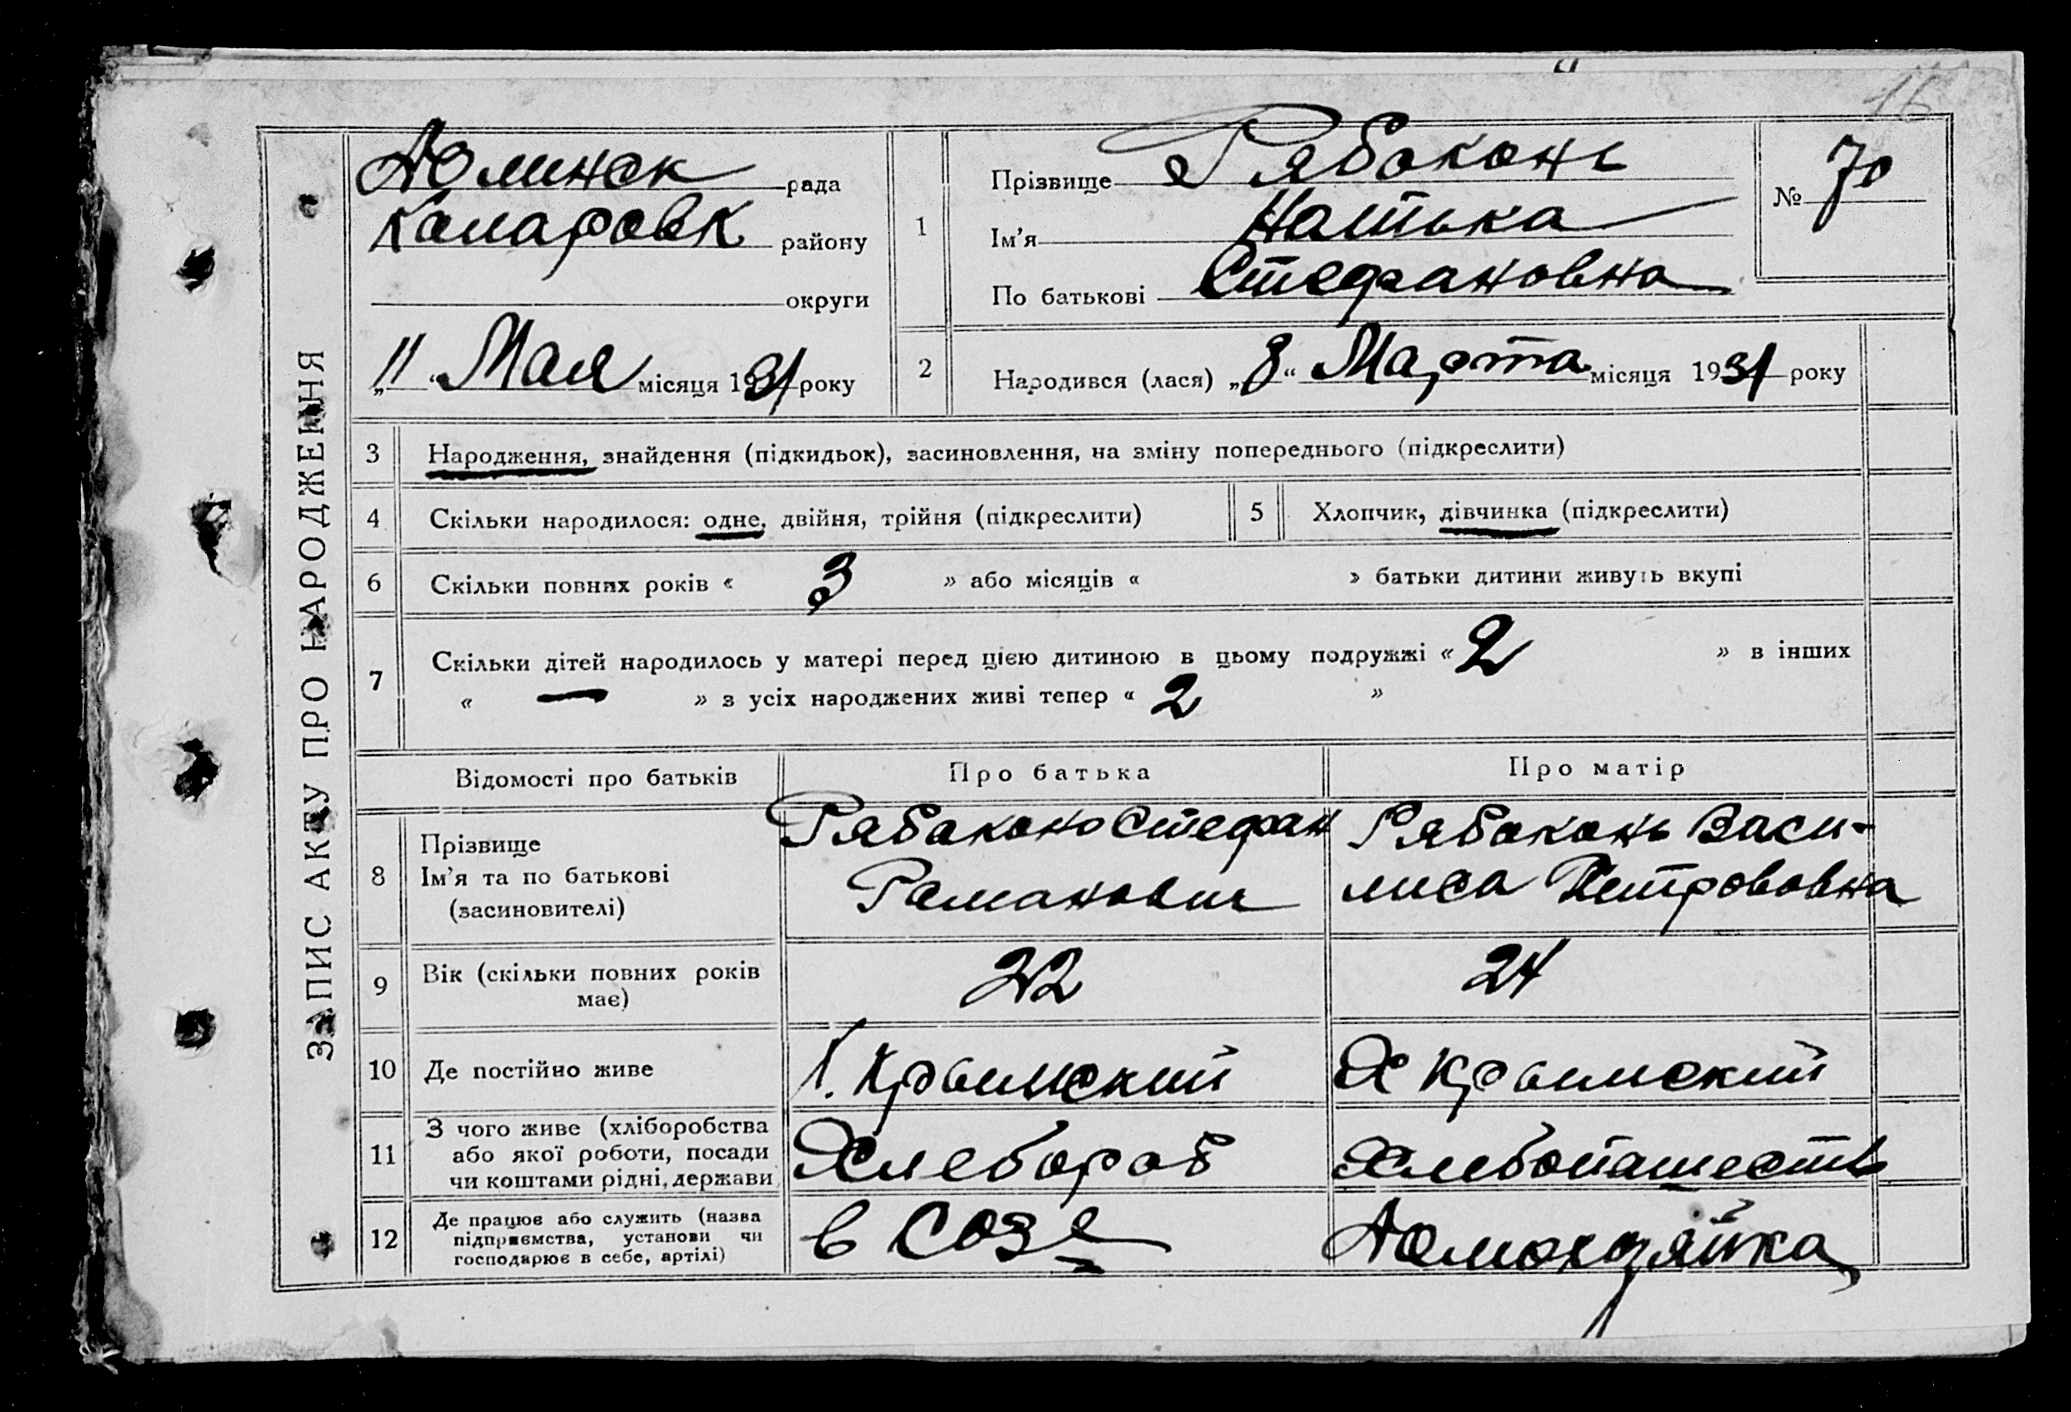 16
ЗАПИС АКТУ ПРО НАРОДЖЕННЯ
рада
району
округи
„11“ Мая місяця 1931 року
1
Прізвище Рябоконь
Ім'я Натька
По батькові Стефановна
№ 70
2
Народився (лася) „8“ Марта місяця 1931 року
3
Народження, знайдення (підкидьок), засиновлення, на зміну попереднього (підкреслити)
4
Скільки народилося: одне, двійня, трійня (підкреслити)
5
Хлопчик, дівчинка (підкреслити)
6
Скільки повних років « 3 » або місяців « » батьки дитини живуть вкупі
7
Скільки дітей народилось у матері перед цією дитиною в цьому подружжі « 2 » в інших
« — » з усіх народжених живі тепер « 2 »
Відомості про батьків
Про батька
Про матір
8
Прізвище
Ім'я та по батькові
(засиновителі)
Рябоконь Стефан
Раманович
Рябоконь Васи-
лиса Петрововна
9
Вік (скільки повних років
має)
22
24
10
Де постійно живе
Х. Крымский
Х Крымский
11
З чого живе (хліборобства
або якої роботи, посади
чи коштами рідні, держави
Хлебороб
Хлебопашеств
12
Де працює або служить (назва
підприємства, установи чи
господарює в себе, артілі)
в СОЗе
Домохозяйка